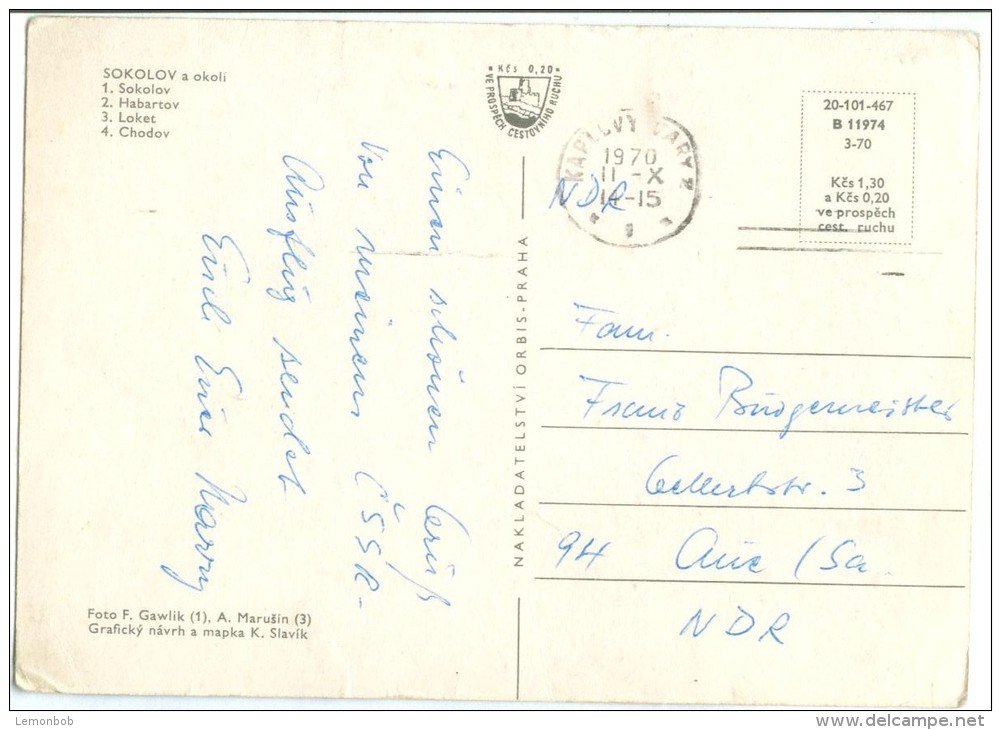 SOKOLOV a okolí
1. Sokolov
2. Habartov
3. Loket
4. Chodov
• Kčs 0,20 •
VE PROSPĚCH CESTOVNÍHO RUCHU
KARLOVY VARY
1970
11-X
14-15
NDR
20-101-467
B 11974
3-70
Kčs 1,30
a Kčs 0,20
ve prospěch
cest. ruchu
Einen schönen Gruß
von meinem ČSSR-
Ausflug sendet
Euch Euer
NAKLADATELSTVÍ ORBIS-PRAHA
Fam.
Franz Bürgermeister
Gellertstr. 3
94 Aue / Sa.
NDR
Foto F. Gawlik (1), A. Marušin (3)
Grafický návrh a mapka K. Slavík
Lemonbob
www.delcampe.net